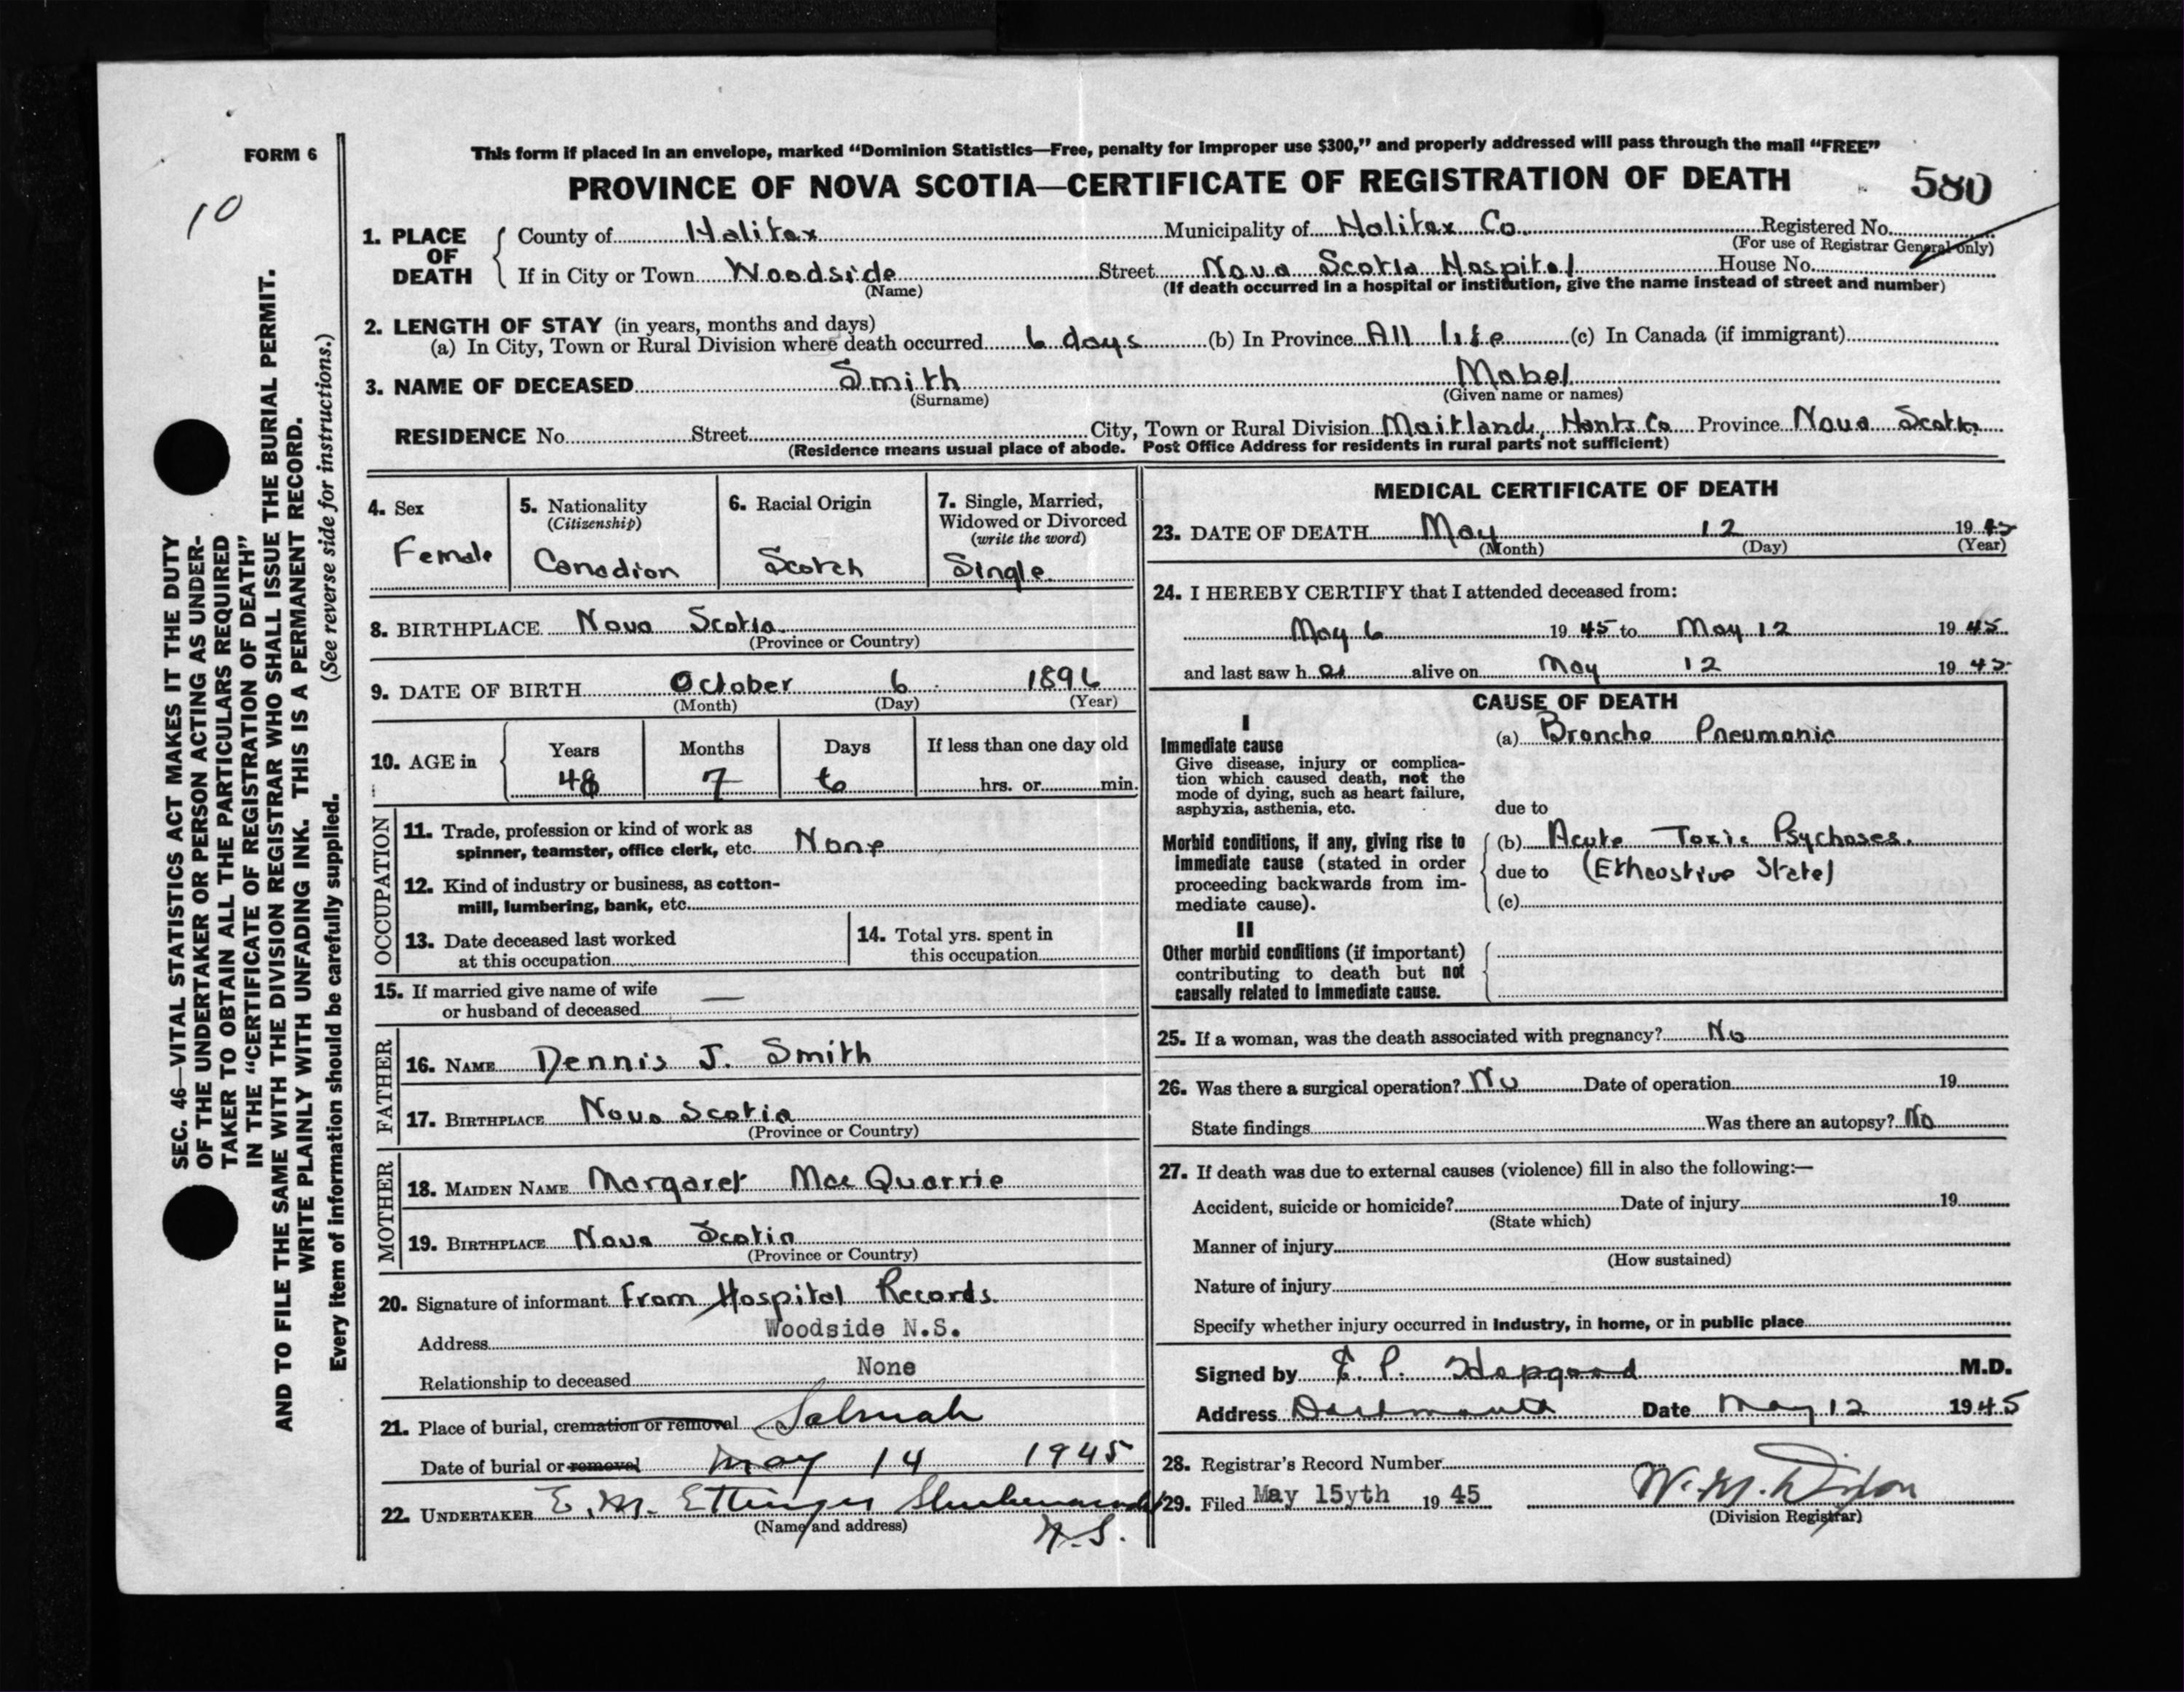 FORM 6
10
This form if placed in an envelope, marked “Dominion Statistics—Free, penalty for improper use $300,” and properly addressed will pass through the mail “FREE”
PROVINCE OF NOVA SCOTIA—CERTIFICATE OF REGISTRATION OF DEATH
580
1. PLACE OF DEATH
County of Halifax Municipality of Halifax Co. Registered No.
(For use of Registrar General only)
If in City or Town Woodside Street Nova Scotia Hospital House No.
(Name) (If death occurred in a hospital or institution, give the name instead of street and number)
2. LENGTH OF STAY (in years, months and days)
(a) In City, Town or Rural Division where death occurred 6 days (b) In Province All life (c) In Canada (if immigrant)
3. NAME OF DECEASED Smith Mabel
(Surname) (Given name or names)
RESIDENCE No. Street City, Town or Rural Division Maitland, Hants Co Province Nova Scotia
(Residence means usual place of abode. Post Office Address for residents in rural parts not sufficient)
4. Sex
Female
5. Nationality
(Citizenship)
Canadian
6. Racial Origin
Scotch
7. Single, Married,
Widowed or Divorced
(write the word)
Single
8. BIRTHPLACE Nova Scotia
(Province or Country)
9. DATE OF BIRTH October 6 1896
(Month) (Day) (Year)
10. AGE in
Years Months Days If less than one day old
48 7 6 hrs. or min.
OCCUPATION
11. Trade, profession or kind of work as
spinner, teamster, office clerk, etc. None
12. Kind of industry or business, as cotton-
mill, lumbering, bank, etc.
13. Date deceased last worked
at this occupation
14. Total yrs. spent in
this occupation
15. If married give name of wife
or husband of deceased —
FATHER
16. NAME Dennis J. Smith
17. BIRTHPLACE Nova Scotia
(Province or Country)
MOTHER
18. MAIDEN NAME Margaret Mac Quarrie
19. BIRTHPLACE Nova Scotia
(Province or Country)
20. Signature of informant From Hospital Records
Address Woodside N.S.
Relationship to deceased None
21. Place of burial, cremation or removal Selmah
Date of burial or removal May 14 1945
22. UNDERTAKER E. M. Ettinger Shubenacadie
(Name and address)
N.S.
MEDICAL CERTIFICATE OF DEATH
23. DATE OF DEATH May 12 1945
(Month) (Day) (Year)
24. I HEREBY CERTIFY that I attended deceased from:
May 6 1945 to May 12 1945
and last saw h er alive on May 12 1945
CAUSE OF DEATH
I
Immediate cause
Give disease, injury or complica-
tion which caused death, not the
mode of dying, such as heart failure,
asphyxia, asthenia, etc.
(a) Broncho Pneumonia
due to
Morbid conditions, if any, giving rise to
immediate cause (stated in order
proceeding backwards from im-
mediate cause).
(b) Acute Toxic Psychoses.
due to (Exhaustive State)
(c)
II
Other morbid conditions (if important)
contributing to death but not
causally related to immediate cause.
25. If a woman, was the death associated with pregnancy? No
26. Was there a surgical operation? No Date of operation 19
State findings Was there an autopsy? No
27. If death was due to external causes (violence) fill in also the following:—
Accident, suicide or homicide? Date of injury 19
(State which)
Manner of injury
(How sustained)
Nature of injury
Specify whether injury occurred in industry, in home, or in public place
Signed by E. P. Hopgood M.D.
Address Dartmouth Date May 12 1945
28. Registrar's Record Number
29. Filed May 15yth 1945 W. M. Dixon
(Division Registrar)
SEC. 46—VITAL STATISTICS ACT MAKES IT THE DUTY
OF THE UNDERTAKER OR PERSON ACTING AS UNDER-
TAKER TO OBTAIN ALL THE PARTICULARS REQUIRED
IN THE “CERTIFICATE OF REGISTRATION OF DEATH”
AND TO FILE THE SAME WITH THE DIVISION REGISTRAR WHO SHALL ISSUE THE BURIAL PERMIT.
WRITE PLAINLY WITH UNFADING INK. THIS IS A PERMANENT RECORD.
Every item of information should be carefully supplied. (See reverse side for instructions.)